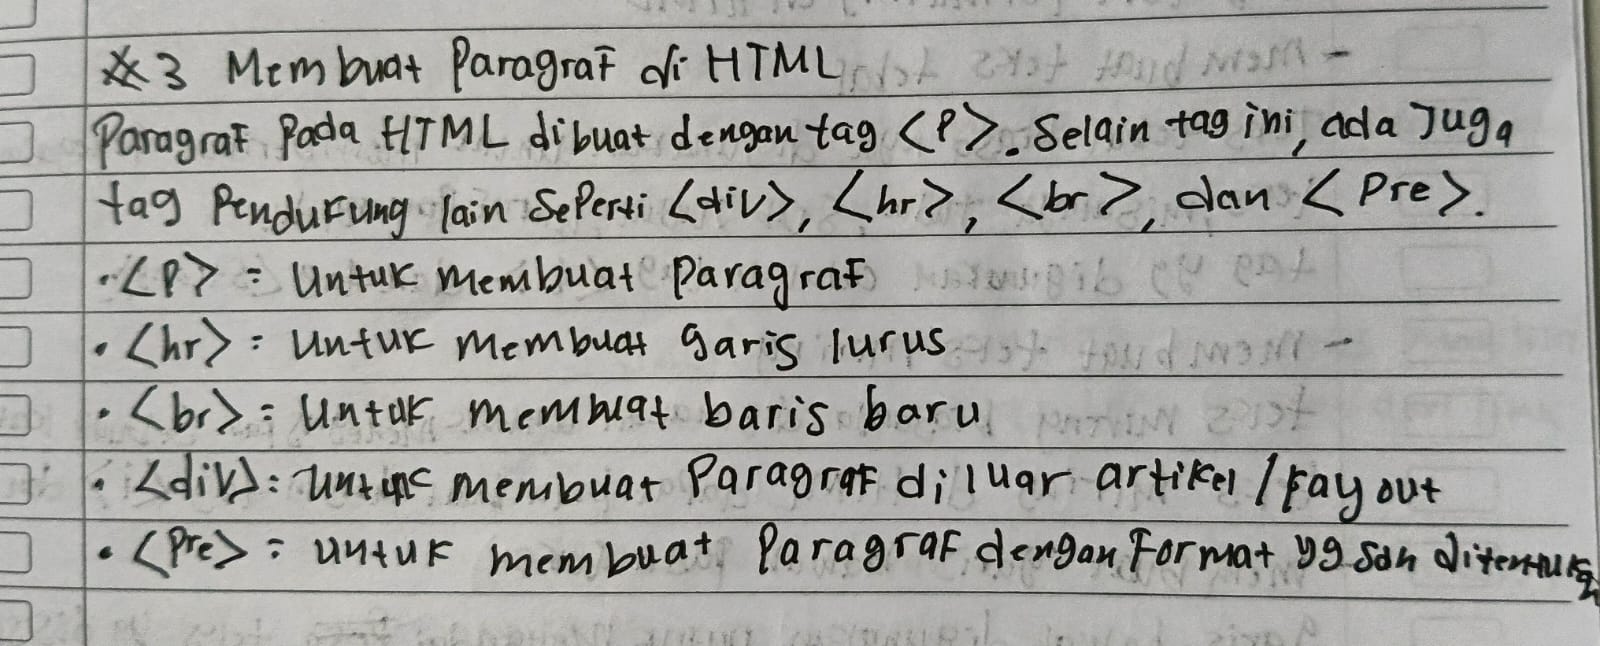 #3 Membuat Paragraf di HTML
Paragraf pada HTML dibuat dengan tag <P>. Selain tag ini, ada Juga
tag Pendukung lain SePerti <div>, <hr>, <br>, dan <Pre>.
• <P> = Untuk membuat Paragraf
• <hr> = Untuk membuat garis lurus
• <br> = Untuk membuat baris baru
• <div> = Untuk membuat Paragraf diluar artikel / Layout
• <Pre> = untuk membuat Paragraf dengan Format yg sdh ditentukan